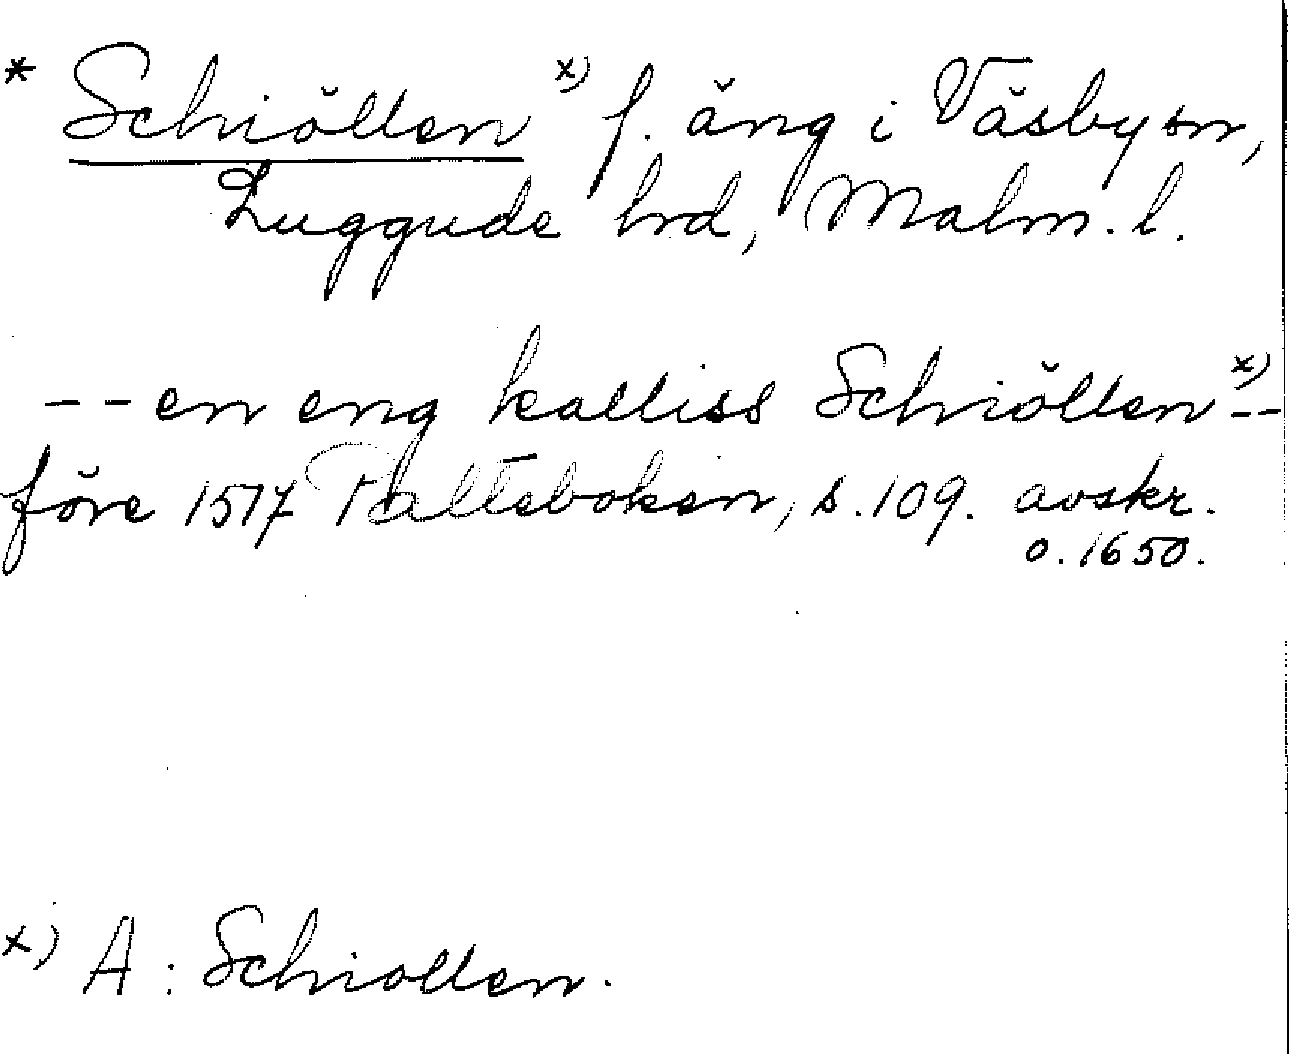 * Schiöllen x) f. äng i Väsby sn,
Luggude hd, Malm. l.
-- en eng kalliss Schiöllen x) --
före 1517 Palteboken, s. 109. avskr.
o. 1650.
x) A: Schiollen.